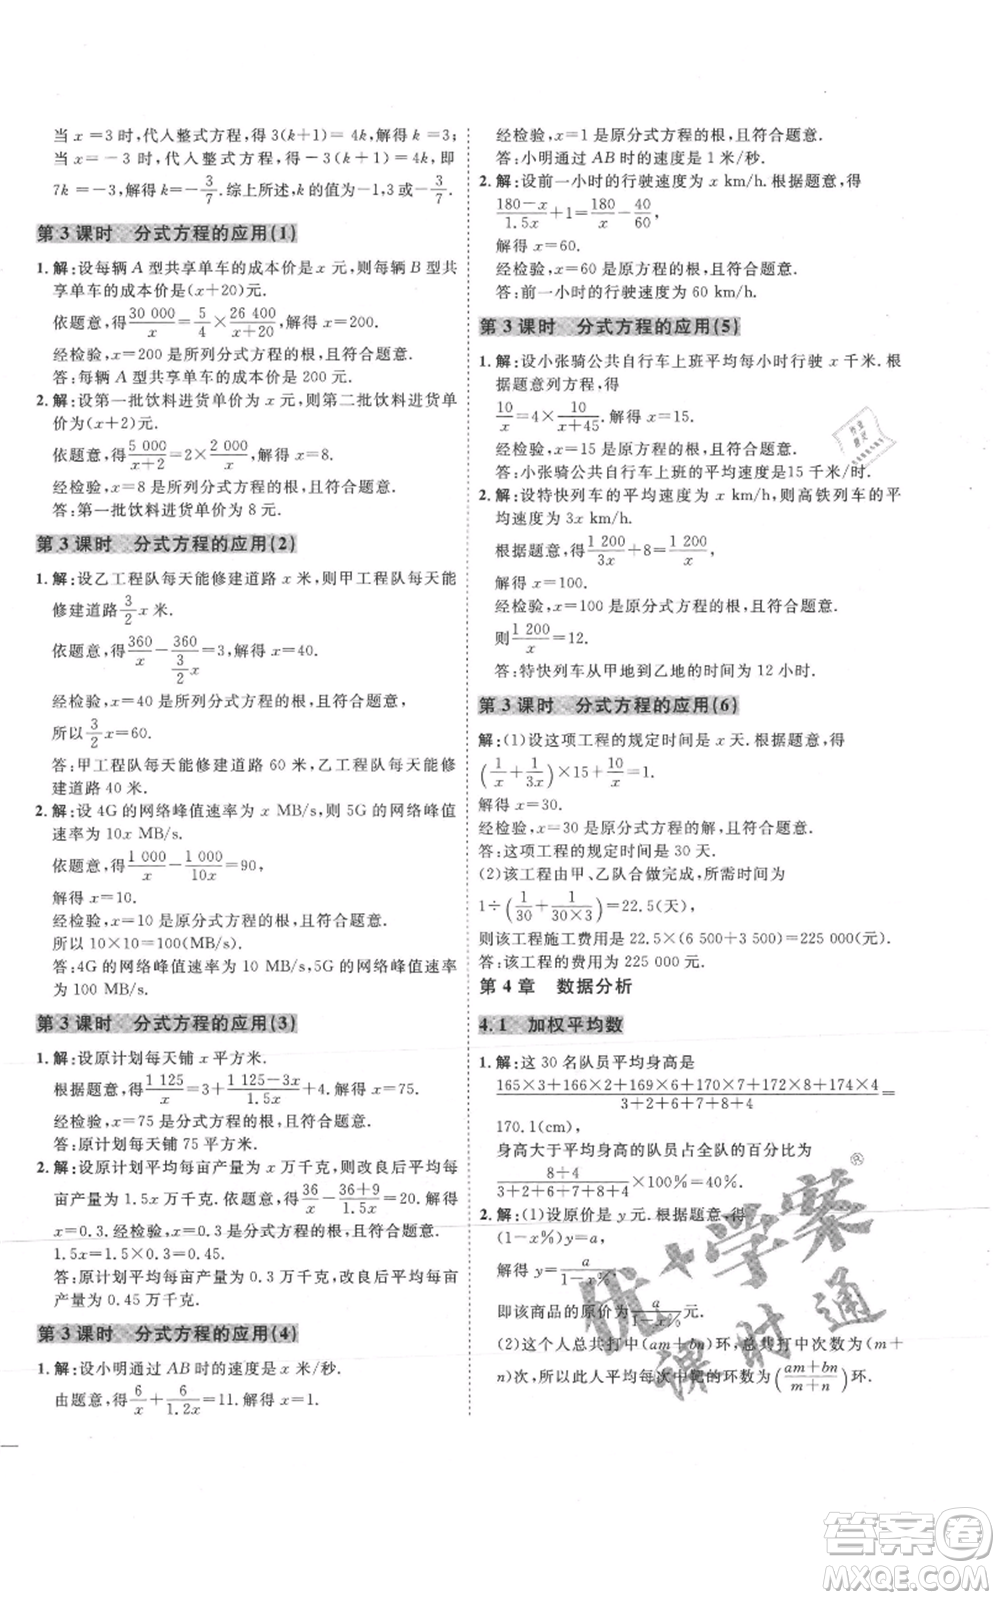 当 x=3 时,代入整式方程,得 3(k+1)=4k,解得 k=3;
当 x=-3 时,代入整式方程,得-3(k+1)=4k,即
7k=-3,解得 k=-3/7.综上所述,k 的值为-1,3 或-3/7.
第 3 课时 分式方程的应用(1)
1. 解:设每辆 A 型共享单车的成本价是 x 元,则每辆 B 型共
享单车的成本价是(x+20)元.
依题意,得30 000/x=5/4×26 400/(x+20),解得 x=200.
经检验,x=200 是所列分式方程的根,且符合题意.
答:每辆 A 型共享单车的成本价是 200 元.
2. 解:设第一批饮料进货单价为 x 元,则第二批饮料进货单
价为(x+2)元.
依题意,得5 000/(x+2)=2×2 000/x,解得 x=8.
经检验,x=8 是所列分式方程的根,且符合题意.
答:第一批饮料进货单价为 8 元.
第 3 课时 分式方程的应用(2)
1. 解:设乙工程队每天能修建道路 x 米,则甲工程队每天能
修建道路3/2 x 米.
依题意,得360/x-360/(3/2 x)=3,解得 x=40.
经检验,x=40 是所列分式方程的根,且符合题意.
所以3/2 x=60.
答:甲工程队每天能修建道路 60 米,乙工程队每天能修建
道路 40 米.
2. 解:设 4G 的网络峰值速率为 x MB/s,则 5G 的网络峰值
速率为 10x MB/s.
依题意,得1 000/x-1 000/10x=90,
解得 x=10.
经检验,x=10 是原分式方程的根,且符合题意.
所以 10×10=100(MB/s).
答:4G 的网络峰值速率为 10 MB/s,5G 的网络峰值速率
为 100 MB/s.
第 3 课时 分式方程的应用(3)
1. 解:设原计划每天铺 x 平方米.
根据题意,得1 125/x=3+(1 125-3x)/1.5x,解得 x=75.
经检验,x=75 是分式方程的根,且符合题意.
答:原计划每天铺 75 平方米.
2. 解:设原计划平均每亩产量为 x 万千克,则改良后平均每
亩产量为 1.5x 万千克.依题意,得36/x-(36+9)/1.5x=20.解得
x=0.3.经检验,x=0.3 是分式方程的根,且符合题意.
1.5x=1.5×0.3=0.45.
答:原计划平均每亩产量为 0.3 万千克,改良后平均每亩
产量为 0.45 万千克.
第 3 课时 分式方程的应用(4)
1. 解:设小明通过 AB 时的速度是 x 米/秒.
由题意,得6/x+6/1.2x=11.解得 x=1.
经检验,x=1 是原分式方程的根,且符合题意.
答:小明通过 AB 时的速度是 1 米/秒.
2. 解:设前一小时的行驶速度是 x km/h.根据题意,得
(180-x)/1.5x+1=180/x-40/60,
解得 x=60.
经检验,x=60 是原方程的根,且符合题意.
答:前一小时的行驶速度为 60 km/h.
第 3 课时 分式方程的应用(5)
1. 解:设小张骑公共自行车上班平均每小时行驶 x 千米.根
据题意列方程,得
10/x=4×10/(x+45).解得 x=15.
经检验,x=15 是原方程的根,且符合题意.
答:小张骑公共自行车上班的平均速度是15 千米/时.
2. 解:设特快列车的平均速度是 x km/h,则高铁列车的平
均速度为 3x km/h.
根据题意,得1 200/3x+8=1 200/x,
解得 x=100.
经检验,x=100 是原分式方程的根,且符合题意.
则1 200/x=12.
答:特快列车从甲地到乙地的时间为 12 小时.
第 3 课时 分式方程的应用(6)
解:(1)设这项工程的规定时间是 x 天.根据题意,得
(1/x+1/3x)×15+10/x=1.
解得 x=30.
经检验,x=30 是原分式方程的解,且符合题意.
答:这项工程的规定时间是 30 天.
(2)该工程由甲、乙队合做完成,所需时间为
1÷(1/30+1/(30×3))=22.5(天),
则该工程施工费用是 22.5×(6 500+3 500)=225 000(元).
答:该工程的费用为 225 000 元.
第 4 章 数据分析
4.1 加权平均数
1. 解:这 30 名队员平均身高是
(165×3+166×2+169×6+170×7+172×8+174×4)/(3+2+6+7+8+4)=
170.1(cm).
身高大于平均身高的队员占全队的百分比为
(8+4)/(3+2+6+7+8+4)×100%=40%.
2. 解:(1)设原价是 y 元.根据题意,得
(1-x%)y=a,
解得 y=a/(1-x%).
即该商品的原价为a/(1-x%)元.
(2)这个人总共打中(am+bn)环,总共打中次数为(m+
n)次,所以此人平均每次中靶的环数为((am+bn)/(m+n))环.
优+学案
课时通
作业精灵
答案圈
MXQE.COM